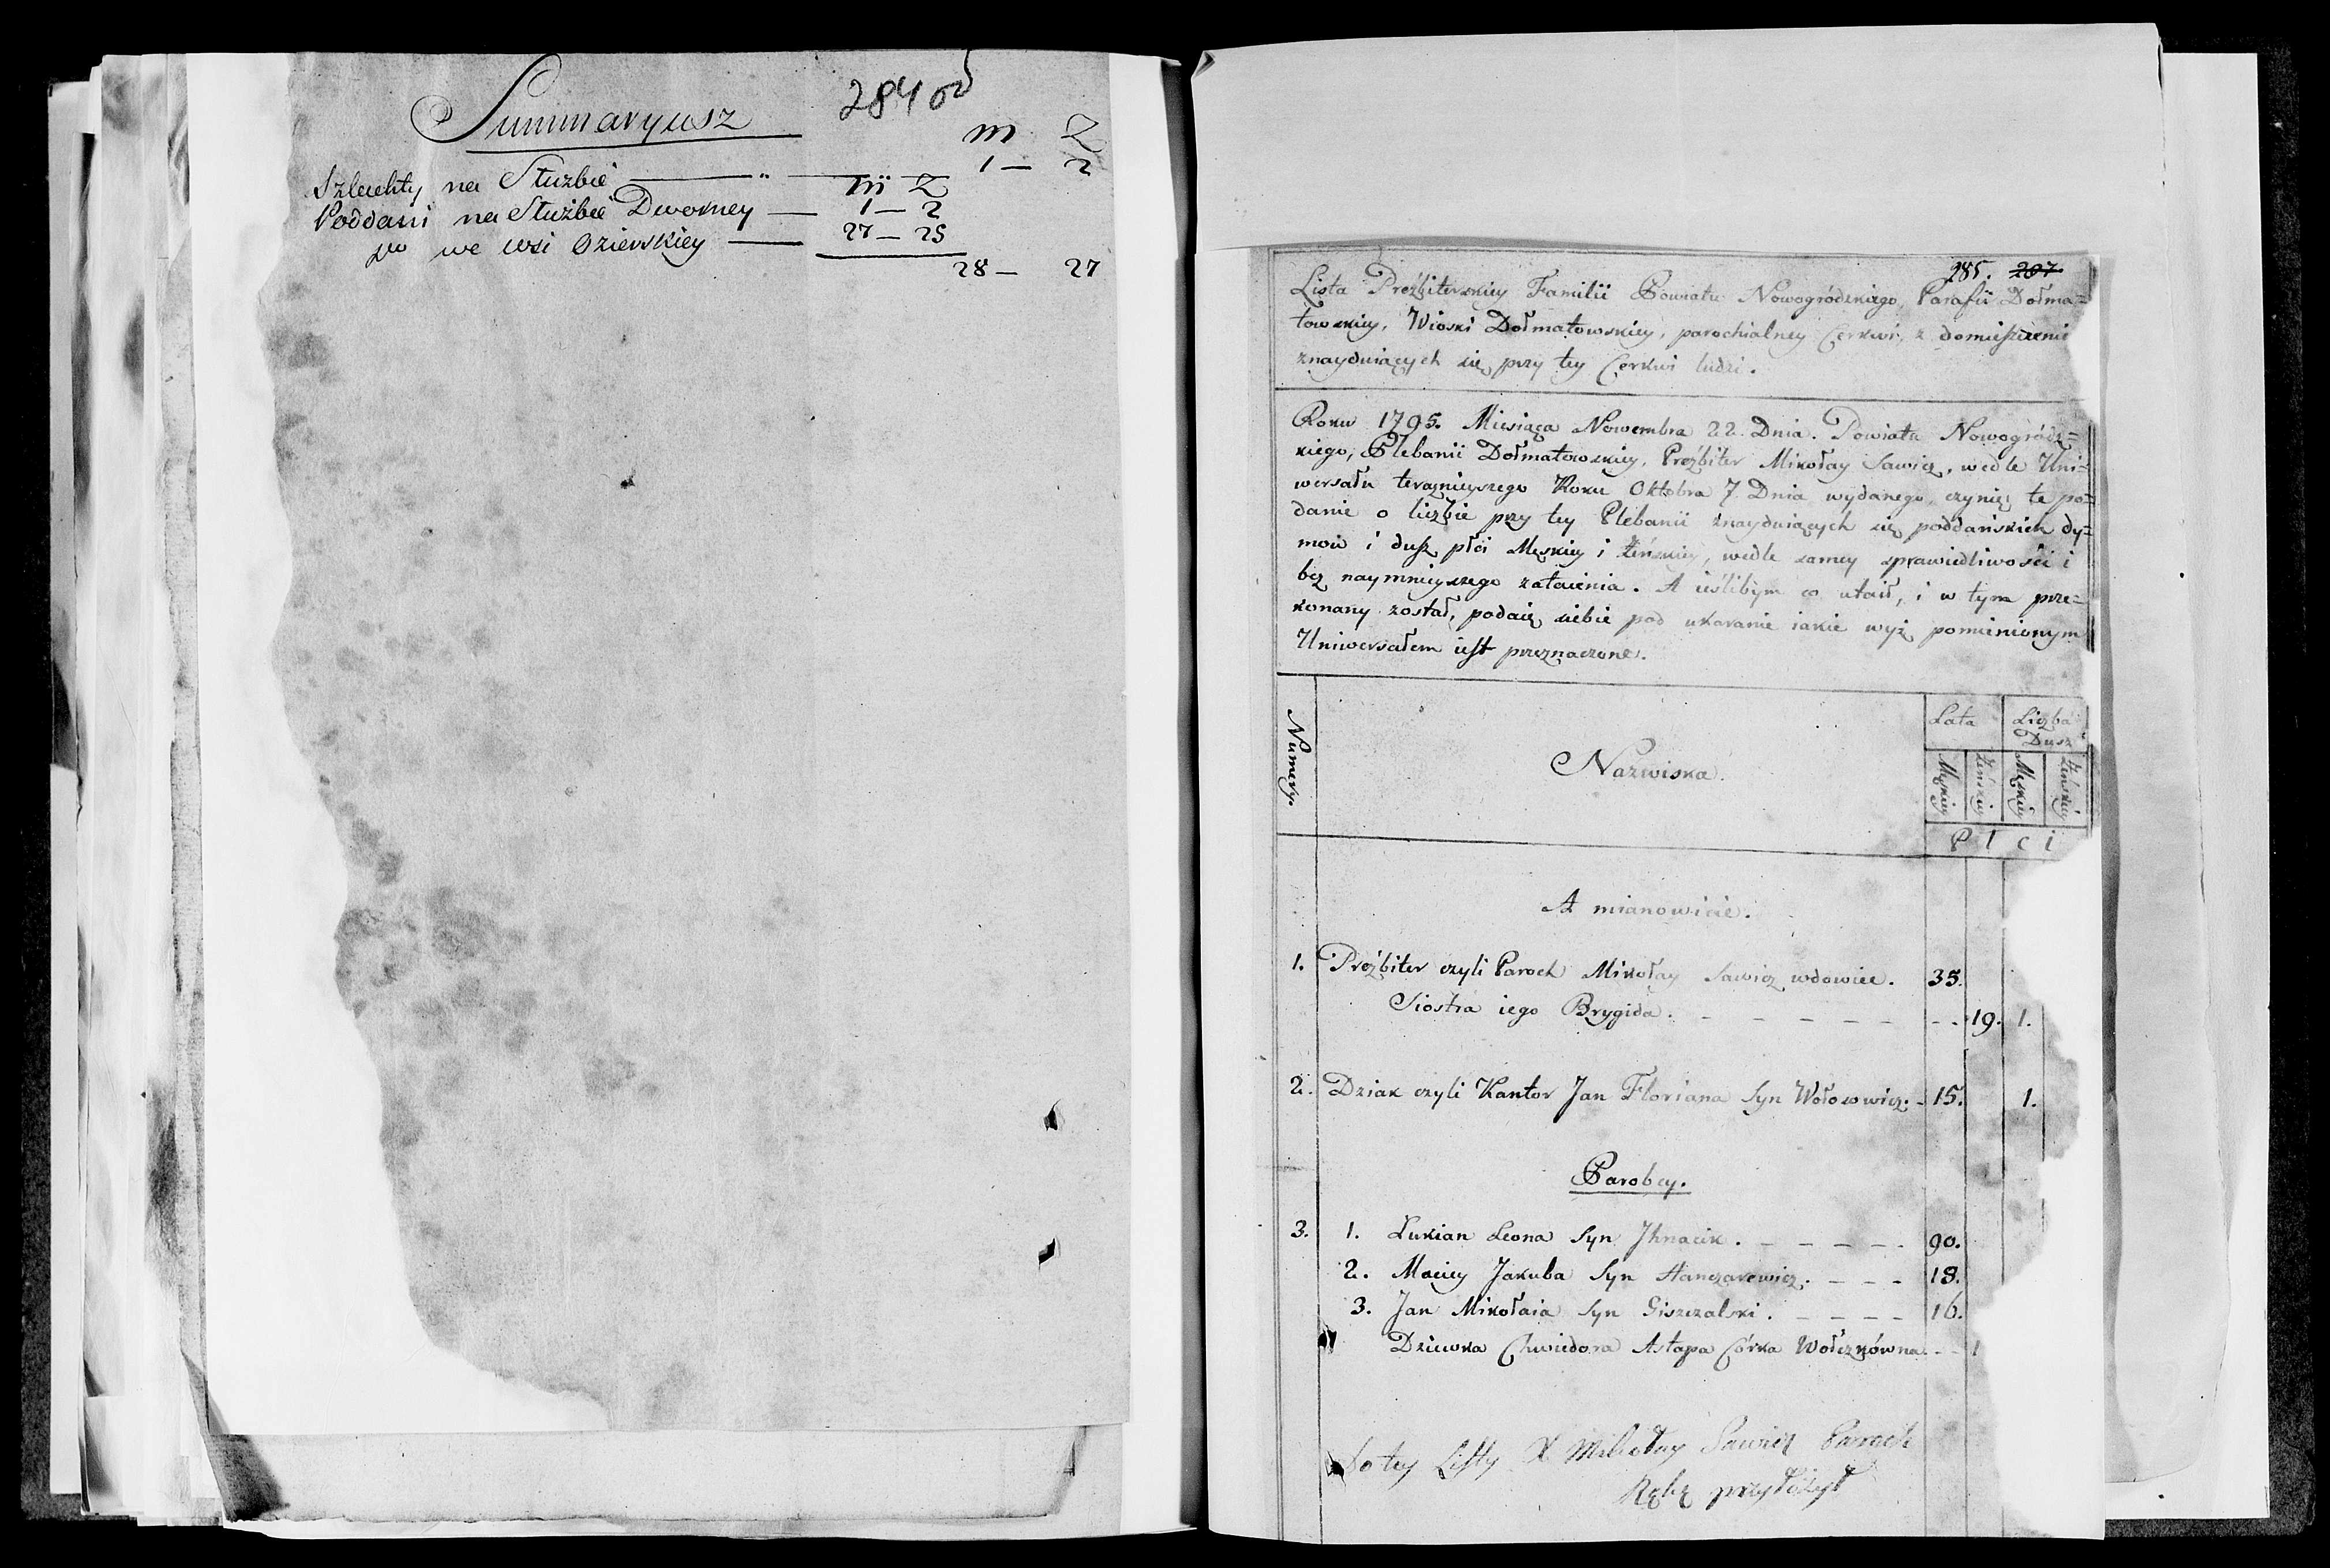 Summaryusz 284 об
m Z
Szlachty na Służbie — „ — 1 — 2
m Z
Poddani na Służbie Dworney — 1 — 2
dto we wsi Ozierskiey — 27 — 25
28 — 27
285. 287
Lista Prezbiterskiey Familii Powiatu Nowogródzkiego, Parafii Dołma=
towskiey, Wioski Dołmatowskiey, parochialney Cerkwi, z domieszczeniem
znayduiących się przy tey Cerkwi ludzi.
Roku 1795. Miesiąca Nowembra 22. Dnia. Powiatu Nowogródz=
kiego, Plebanii Dołmatowskiey, Prezbiter Mikołay Sawicz, wedle Uni=
wersału teraznieyszego Roku Oktobra 7 Dnia wydanego, czynię te po=
danie o liczbie przy tey Plebanii znayduiących się poddańskich dy=
mow i dusz płci Męskiey i Żeńskiey, wedle samey sprawiedliwości i
bez naymnieyszego zataienia. A ieślibym co utaił, i w tym prze=
konany został, podaię siebie pod ukaranie iakie wyż pomienionym
Uniwersałem iest przeznaczone.
Numery.
Nazwiska.
Lata
Liczba Dusz
Męskiey Żeńskiey Męskiey Żeńskiey
P l c i
A mianowicie.
1. Prezbiter czyli Paroch Mikołay Sawicz wdowiec. 35.
Siostra iego Brygida. - - - - - - - 19. 1.
2. Dziak czyli Kantor Jan Floriana Syn Wołosowicz. - 15. 1.
Parobcy.
3. 1. Łukian Leona Syn Jhnacik. - - - - - 90.
2. Maciey Jakuba Syn Hanczarewicz. - - - 18.
3. Jan Mikołaia Syn Giszczalski. - - - - 16.
Dziewka Chwiedora Astapa Córka Wołczkówna. - - 1
Do tey Listy X Mikołay Sawicz Paroch
Rękę przyłożył